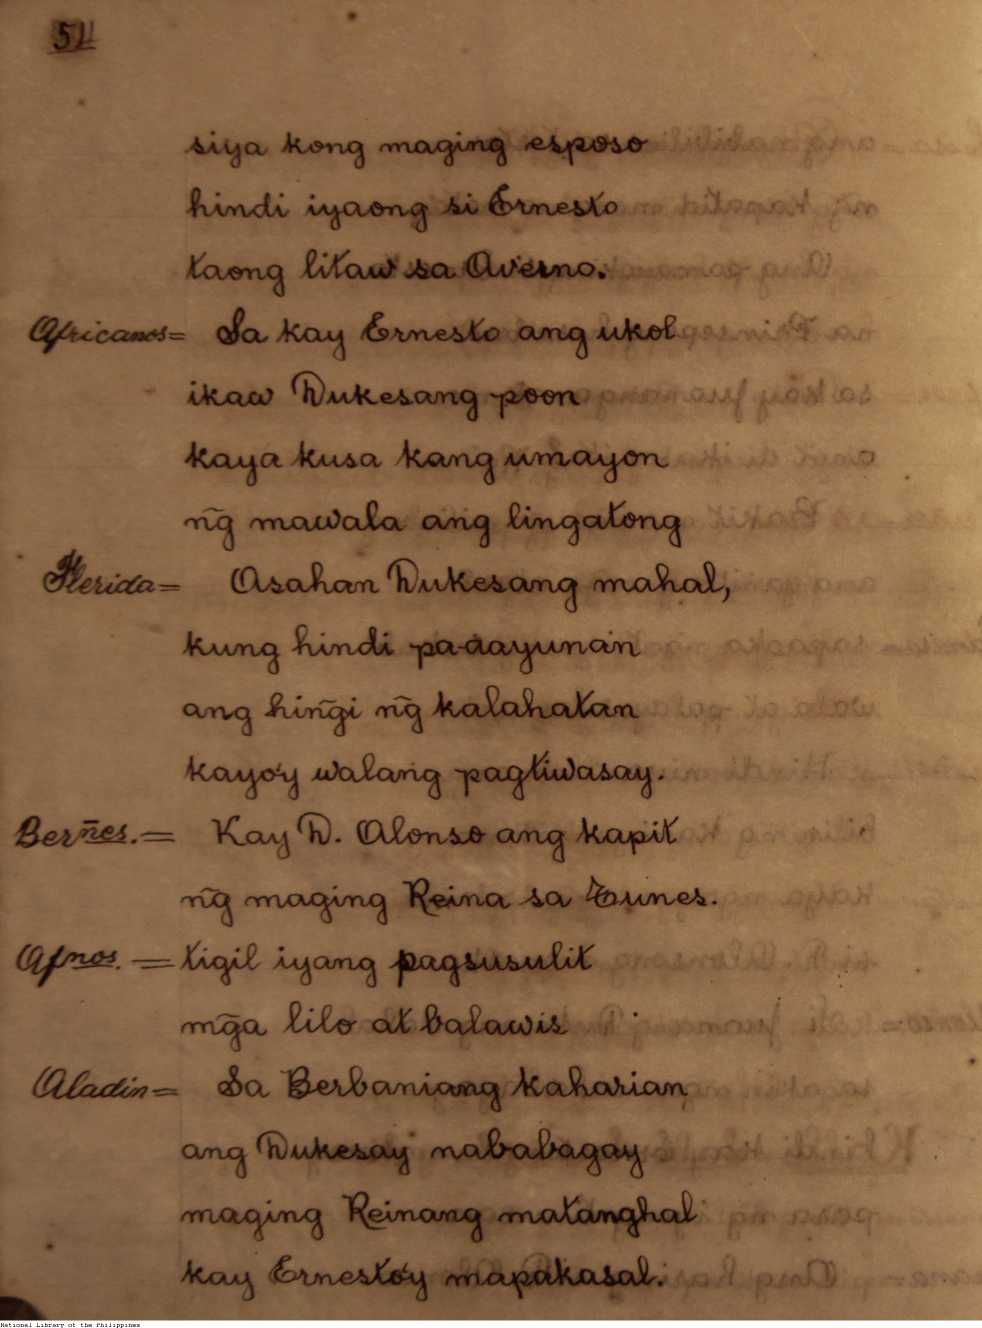 51
siya kong maging esposo
hindi iyaong si Ernesto
taong litaw sa Averno.
Africanos= Sa kay Ernesto ang ukol
ikaw Dukesang poon
kaya kusa kang umayon
ng̃ mawala ang lingatong
Flerida= Asahan Dukesang mahal,
kung hindi pa-aayunan
ang hing̃i ng̃ kalahatan
kayo'y walang pagtiwasay.
Berñes.= Kay D. Alonso ang kapit
ng̃ maging Reina sa Tunes.
Afnos.= tigil iyang pagsusulit
mg̃a lilo at balawis
Aladin= Sa Berbaniang kaharian
ang Dukesay nababagay
maging Reinang matanghal
kay Ernesto'y mapakasal.
National Library of the Philippines